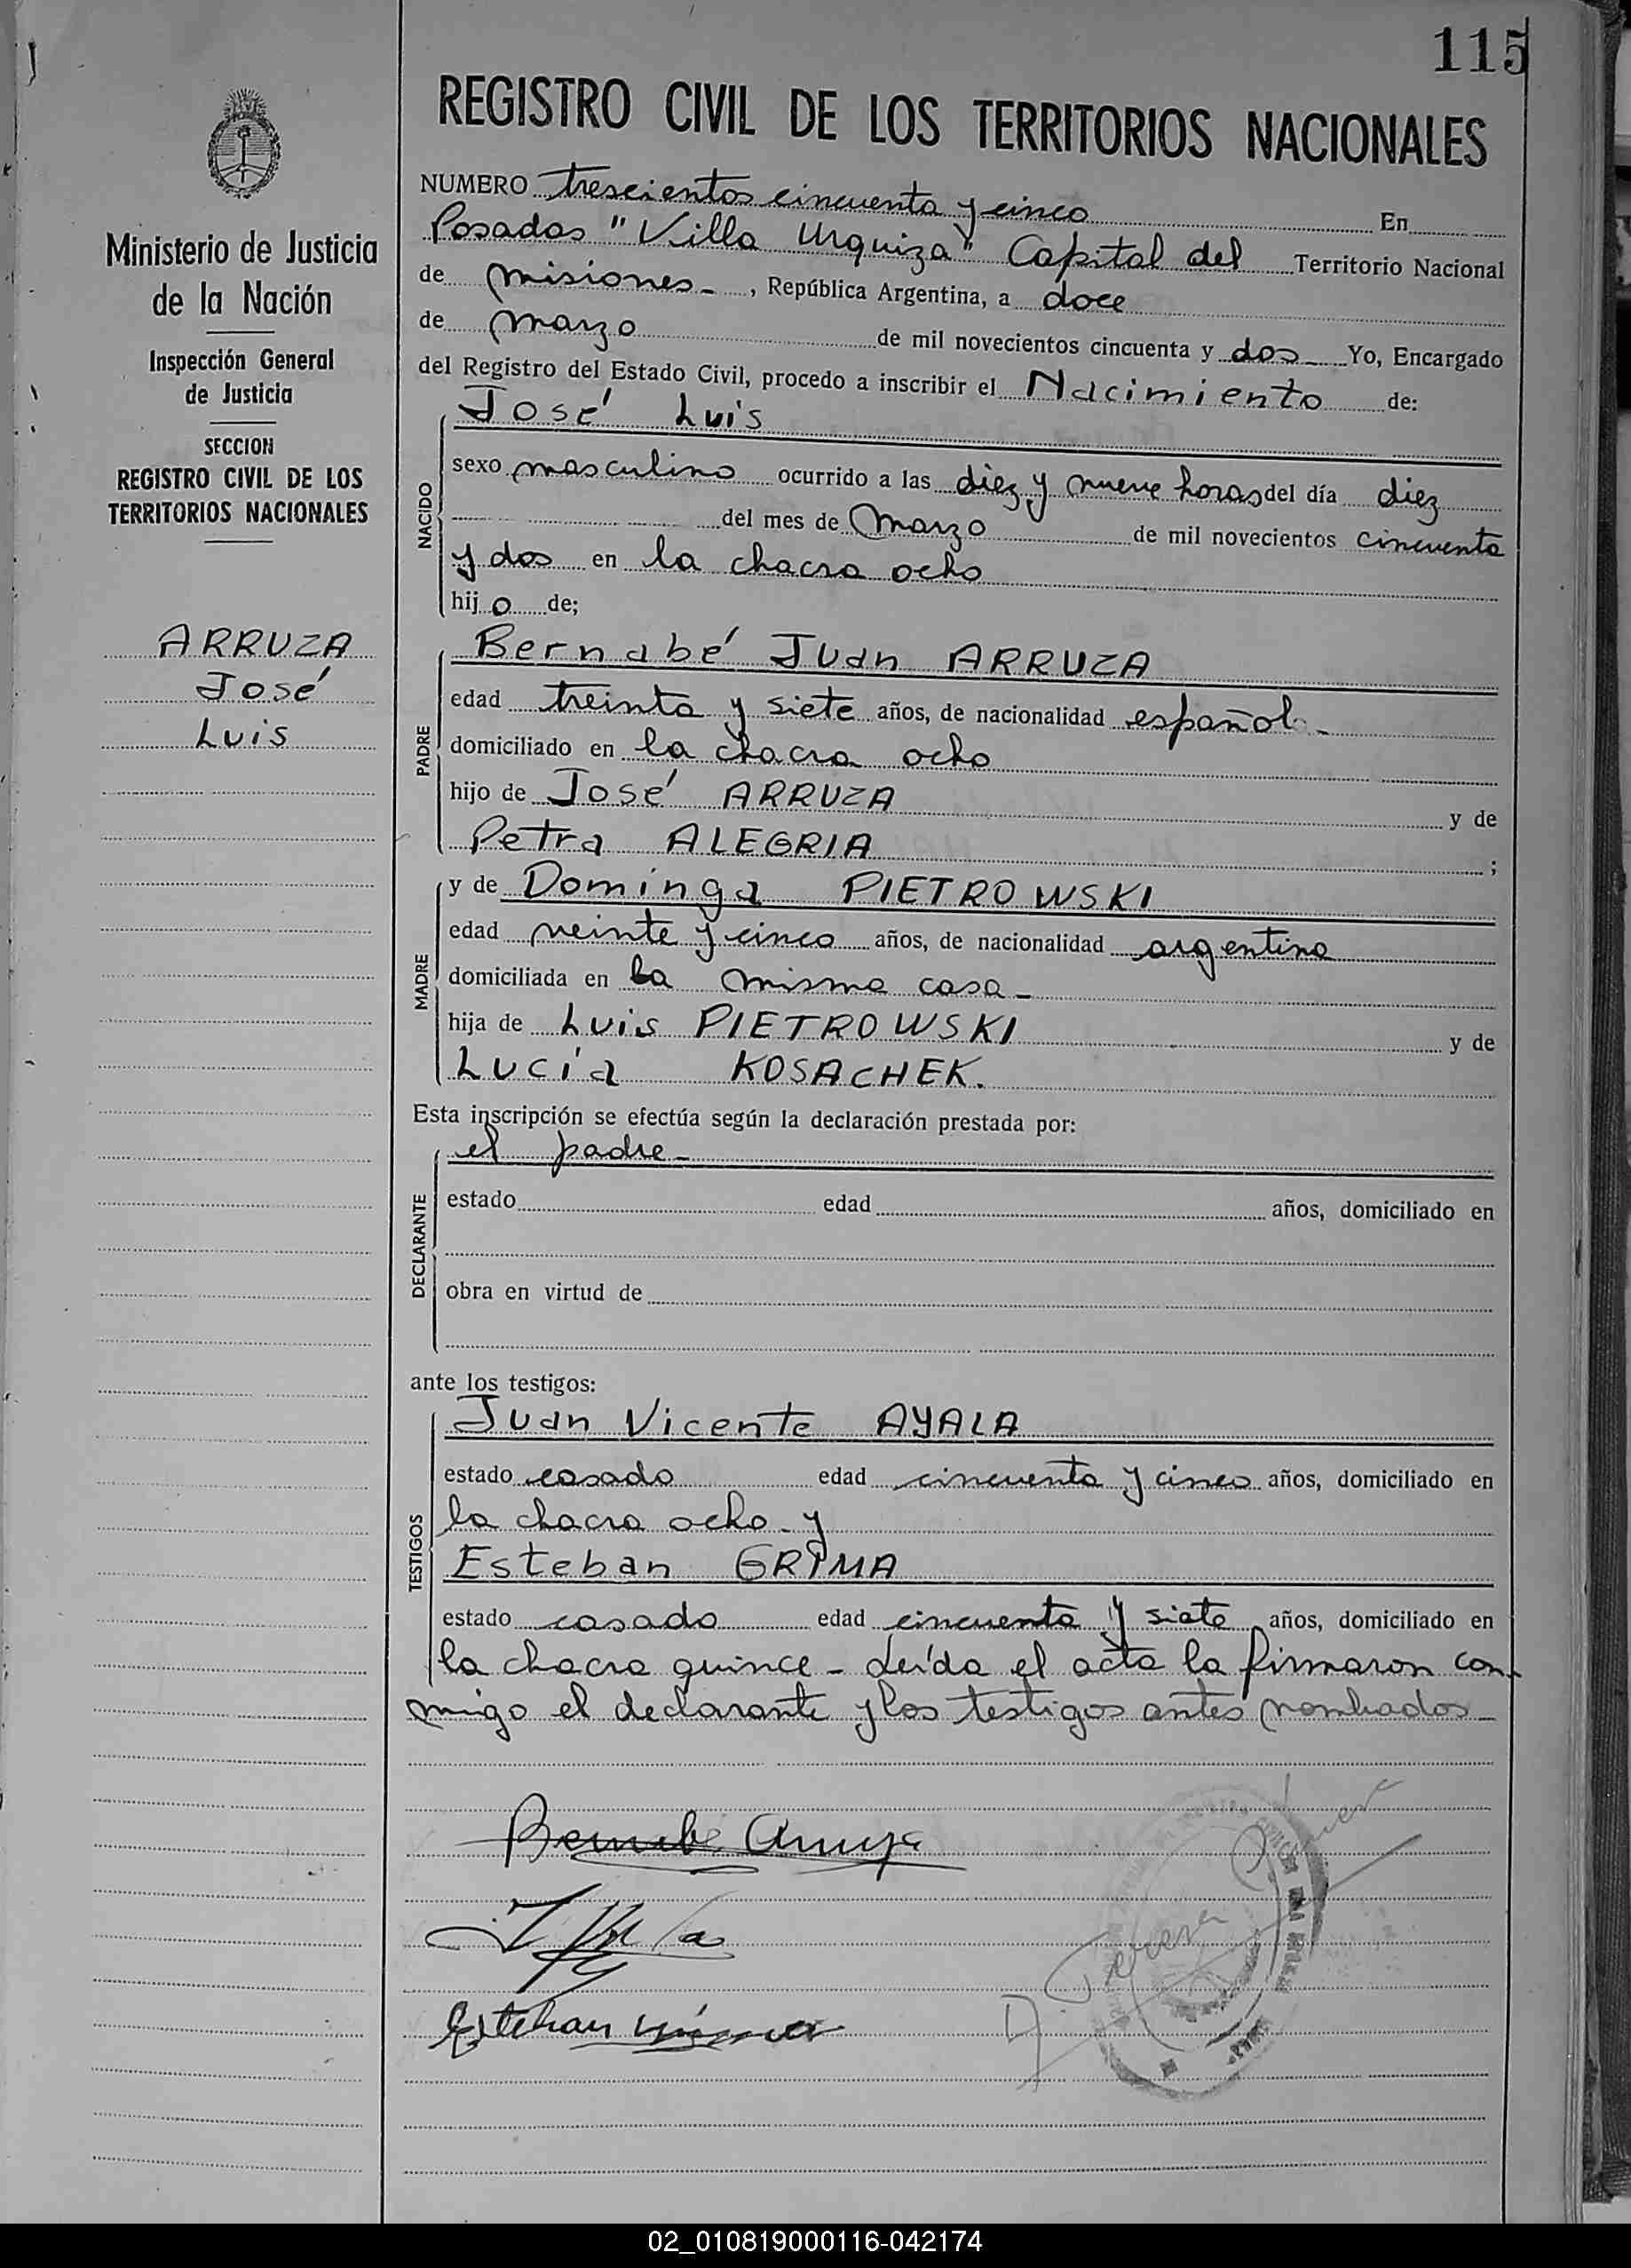 115
REGISTRO CIVIL DE LOS TERRITORIOS NACIONALES
Ministerio de Justicia
de la Nación
Inspección General
de Justicia
SECCION
REGISTRO CIVIL DE LOS
TERRITORIOS NACIONALES
ARRUZA
José
Luis
NUMERO trescientos cincuenta y cinco En
Posadas "Villa Urquiza" Capital del Territorio Nacional
de misiones - , República Argentina, a doce
de marzo de mil novecientos cincuenta y dos Yo, Encargado
del Registro del Estado Civil, procedo a inscribir el Nacimiento de:
NACIDO
José Luis
sexo masculino ocurrido a las diez y nueve horas del día diez
del mes de marzo de mil novecientos cincuenta
y dos en la chacra ocho
hij o de;
PADRE
Bernabé Juan ARRUZA
edad treinta y siete años, de nacionalidad español -
domiciliado en la chacra ocho
hijo de José ARRUZA y de
Petra ALEGRIA ;
MADRE
y de Dominga PIETROWSKI
edad veinte y cinco años, de nacionalidad argentina
domiciliada en la misma casa -
hija de Luis PIETROWSKI y de
Lucía KOSACHEK.
Esta inscripción se efectúa según la declaración prestada por:
DECLARANTE
el padre -
estado edad años, domiciliado en
obra en virtud de
ante los testigos:
TESTIGOS
Juan Vicente AYALA
estado casado edad cincuenta y cinco años, domiciliado en
la chacra ocho - y
Esteban GRIMA
estado casado edad cincuenta y siete años, domiciliado en
la chacra quince - Leída el acta la firmaron con-
migo el declarante y los testigos antes nombrados -
Bernabé Arruza
Esteban
02_010819000116-042174